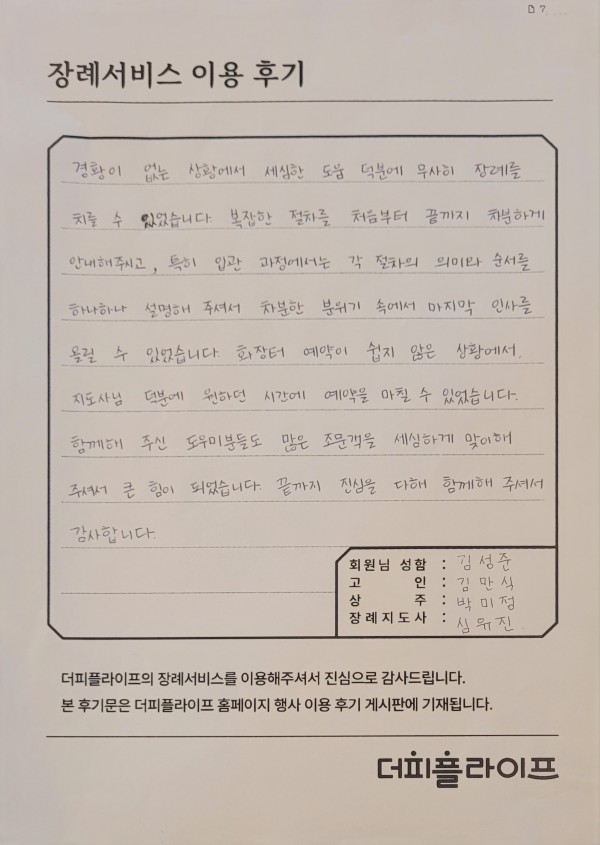 B7
장례서비스 이용 후기
경황이 없는 상황에서 세심한 도움 덕분에 무사히 장례를
치를 수 있었습니다. 복잡한 절차를 처음부터 끝까지 차분하게
안내해주시고, 특히 입관 과정에서는 각 절차의 의미와 순서를
하나하나 설명해 주셔서 차분한 분위기 속에서 마지막 인사를
올릴 수 있었습니다. 화장터 예약이 쉽지 않은 상황에서
지도사님 덕분에 원하던 시간에 예약을 마칠 수 있었습니다.
함께해 주신 도우미분들도 많은 조문객을 세심하게 맞이해
주셔서 큰 힘이 되었습니다. 끝까지 진심을 다해 함께해 주셔서
감사합니다.
회원님 성함 : 김성준
고 인 : 김만식
상 주 : 박미정
장례지도사 : 심유진
더피플라이프의 장례서비스를 이용해주셔서 진심으로 감사드립니다.
본 후기문은 더피플라이프 홈페이지 행사 이용 후기 게시판에 기재됩니다.
더피플라이프